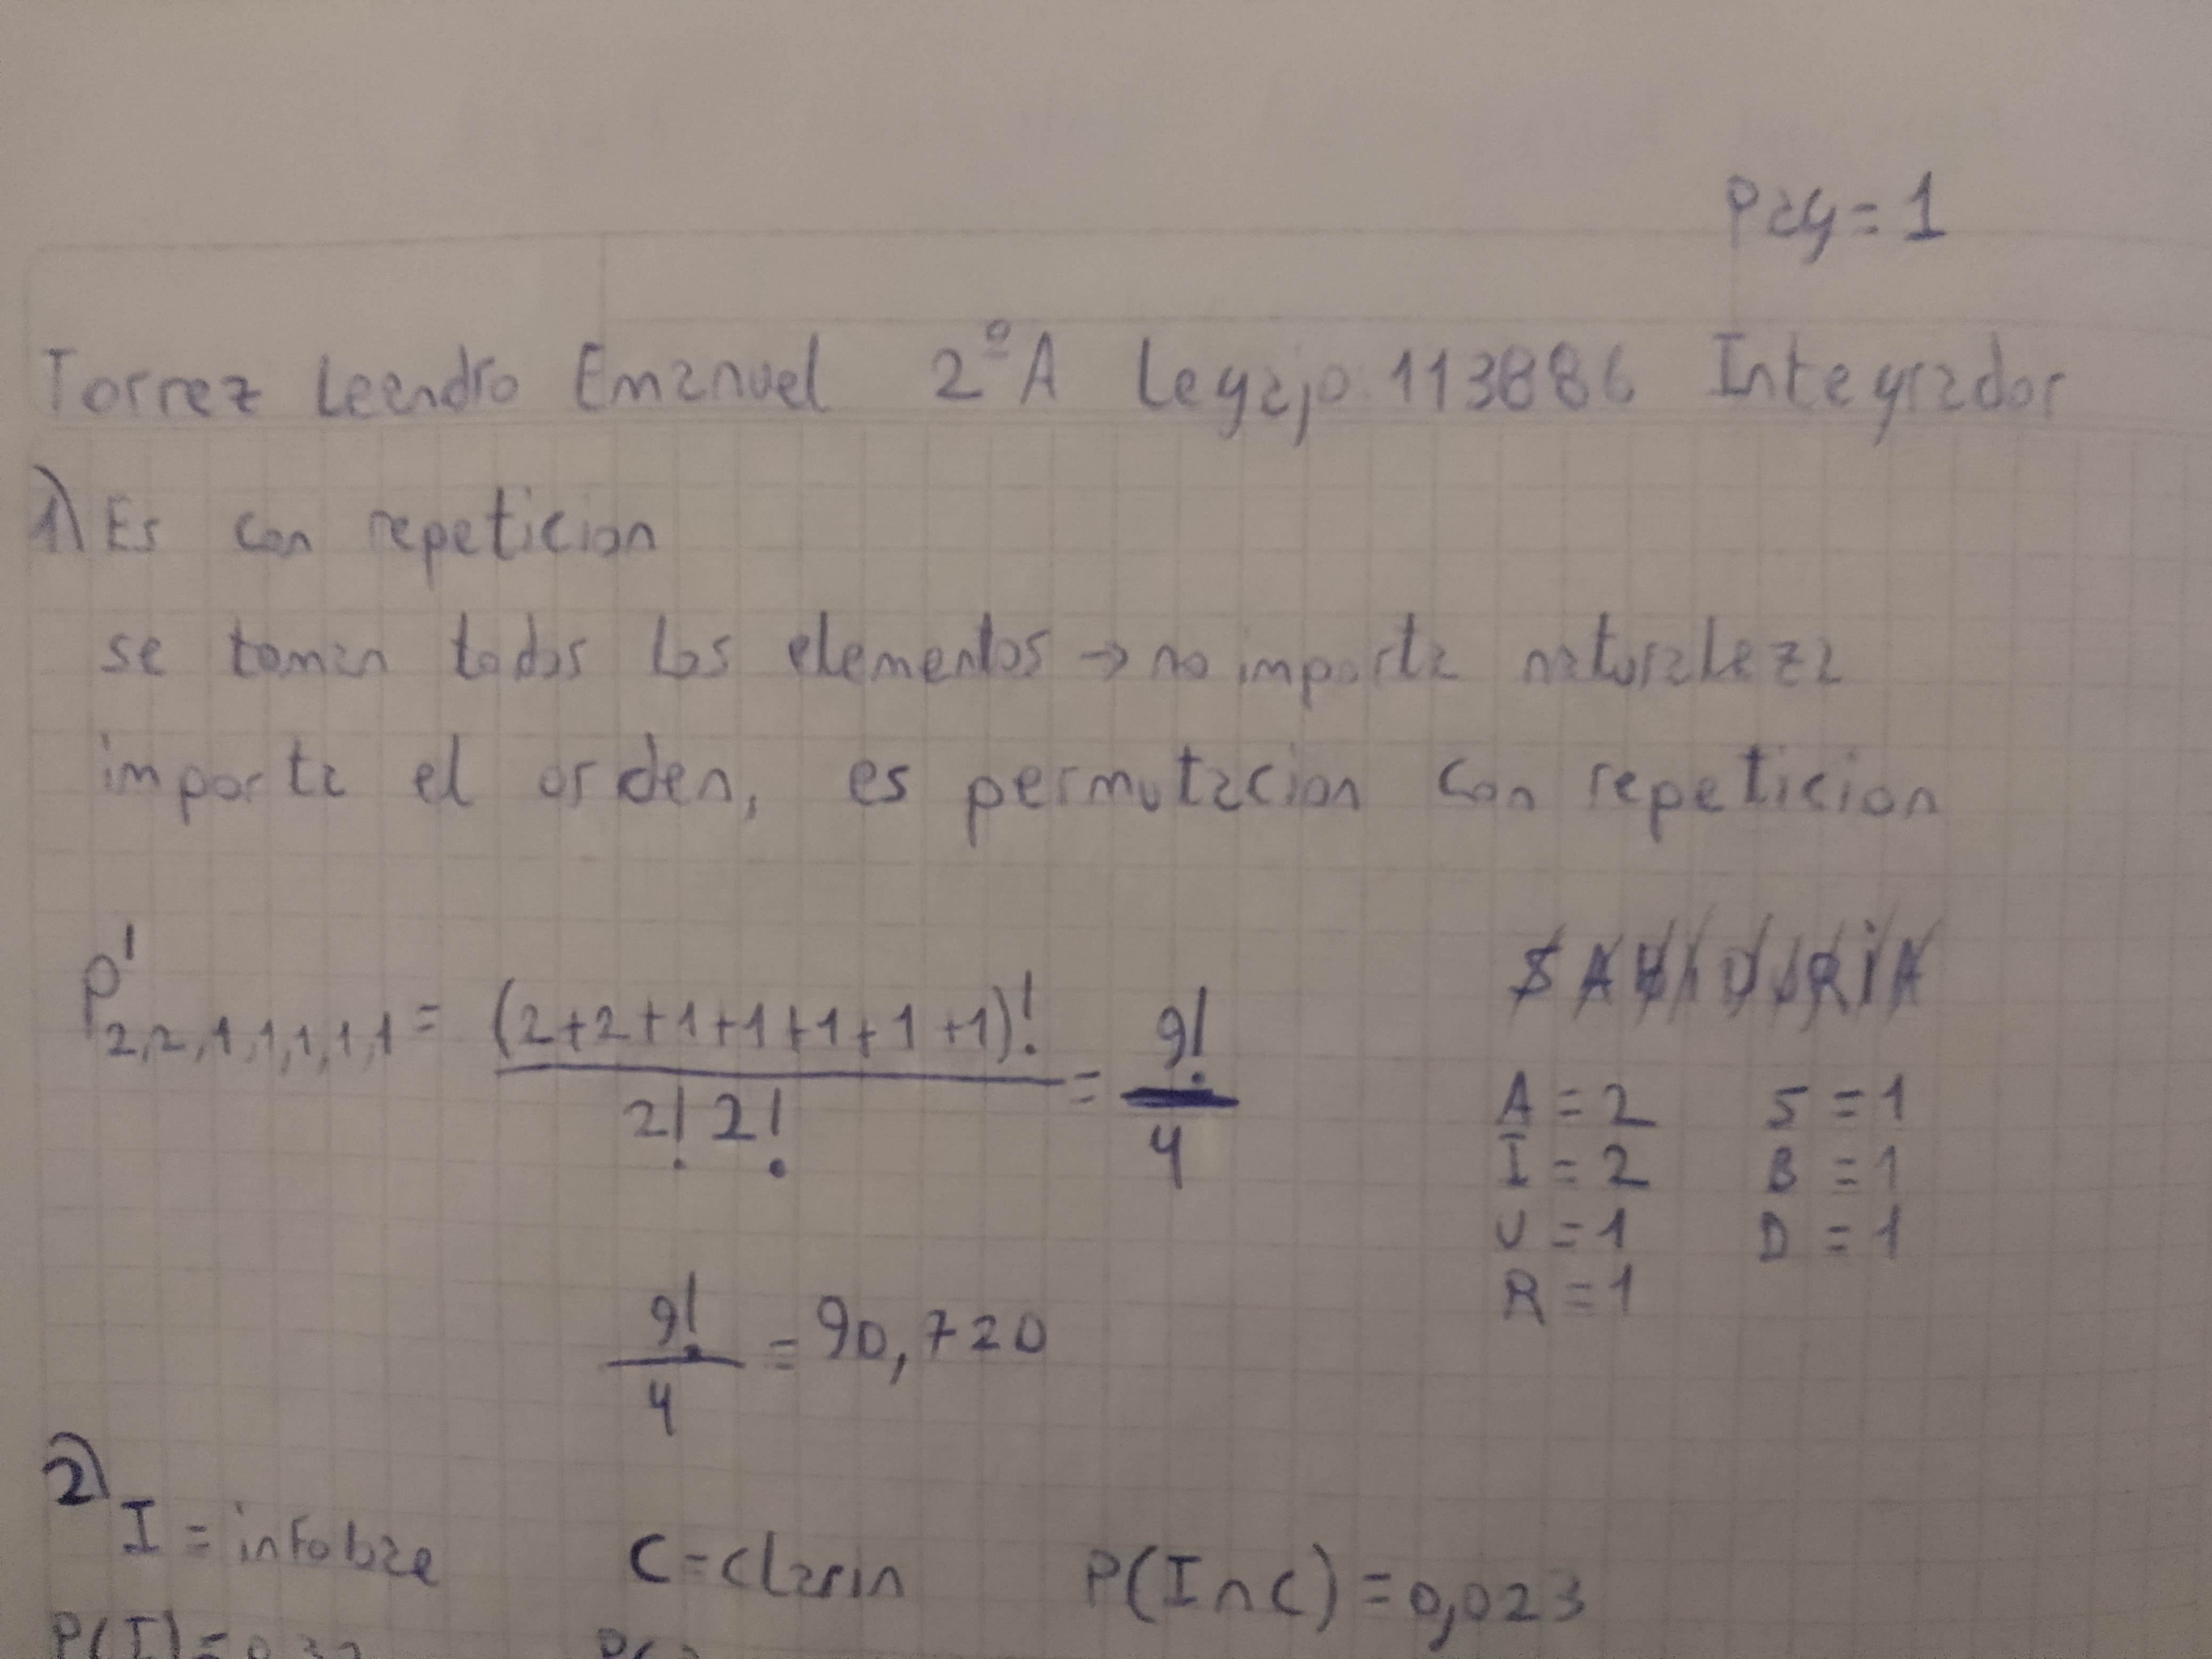 Pag=1
Torrez Leandro Emanuel 2ºA Legajo 113886 Integrador
1) Es con repeticion
se toman todos los elementos → no importa naturaleza
importa el orden, es permutacion con repeticion
P'2,2,1,1,1,1,1 = (2+2+1+1+1+1+1)! / 2! 2! = 9! / 4
SABIDURIA
A = 2 S = 1
I = 2 B = 1
U = 1 D = 1
R = 1
9! / 4 = 90,720
2) I = infobae C = clarin P(I∩C) = 0,023
P(I) = 0,32